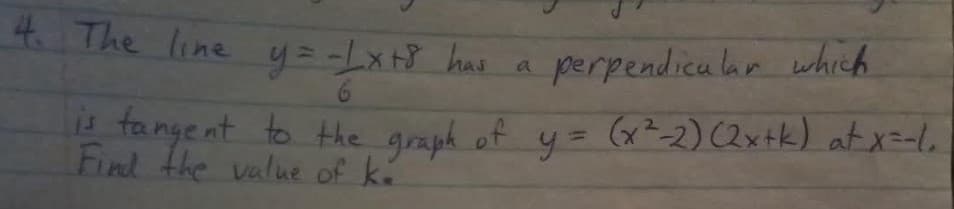 4. The line y = -1/6 x+8 has a perpendicular which
is tangent to the graph of y = (x²-2)(2x+k) at x=-1.
Find the value of k.